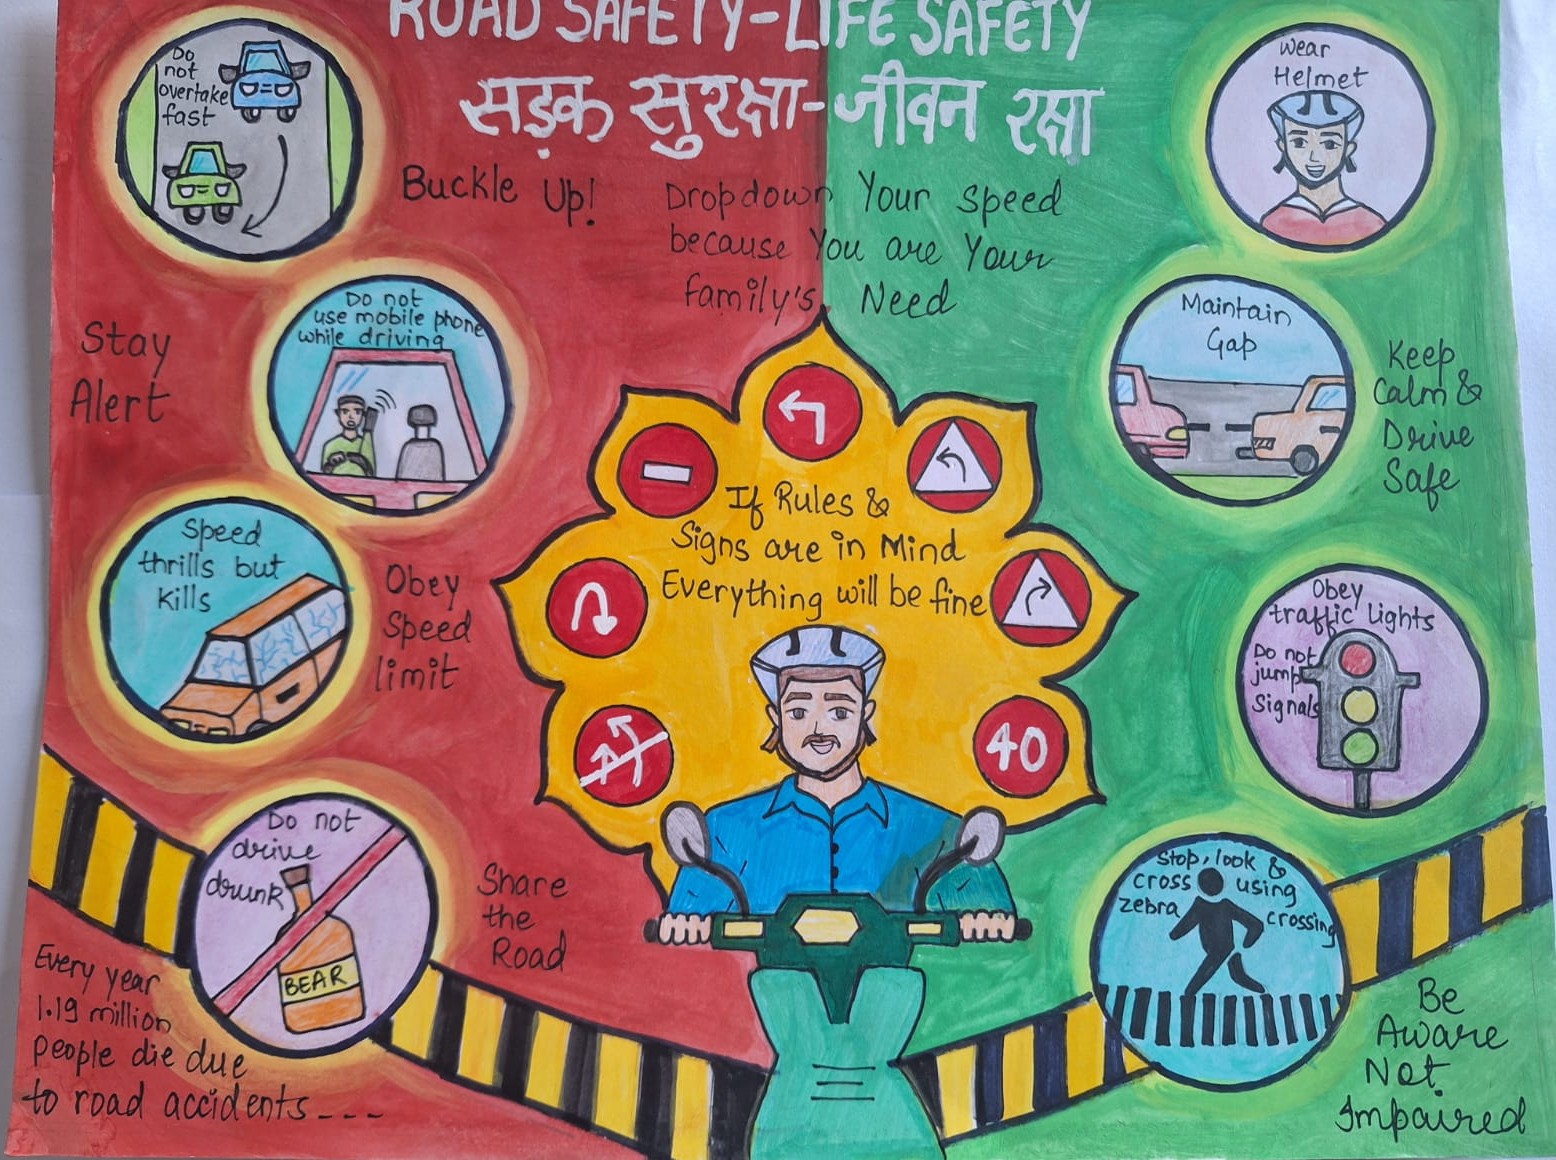 ROAD SAFETY-LIFE SAFETY
सड़क सुरक्षा-जीवन रक्षा
Do
not
overtake
fast
Buckle Up!
Dropdown Your Speed
because You are Your
family's Need
Wear
Helmet
Stay
Alert
Do not
use mobile phone
while driving
Maintain
Gap
Keep
Calm &
Drive
Safe
If Rules &
Signs are in Mind
Everything will be fine
Speed
thrills but
kills
Obey
Speed
limit
40
Obey
traffic lights
Do not
jump
Signals
Do not
drive
drunk
BEAR
Share
the
Road
Stop, look &
cross using
zebra crossing
Every year
1.19 million
people die due
to road accidents----
Be
Aware
Not
Impaired